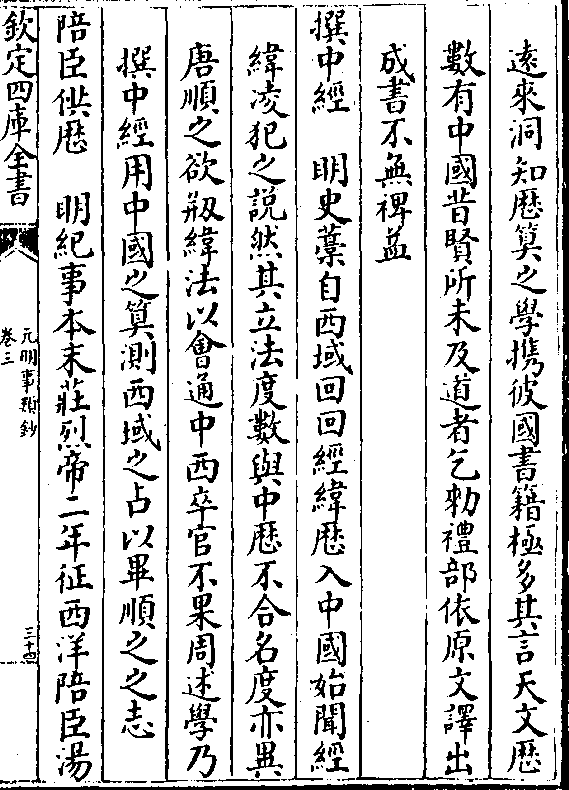 遠來洞知歴算之學攜彼國書籍極多其言天文歴
數有中國昔賢所未及道者乞勅禮部依原文譯出
成書不無裨益
撰中經　明史藁自西域回回經緯歴入中國始聞經
緯凌犯之説然其立法度數與中歴不合名度亦異
唐順之欲剏緯法以會通中西卒官不果周述學乃
撰中經用中國之算測西域之占以畢順之之志
陪臣供歴　明紀事本末莊烈帝二年征西洋陪臣湯
欽定四庫全書
元明事類鈔
卷三
三十四